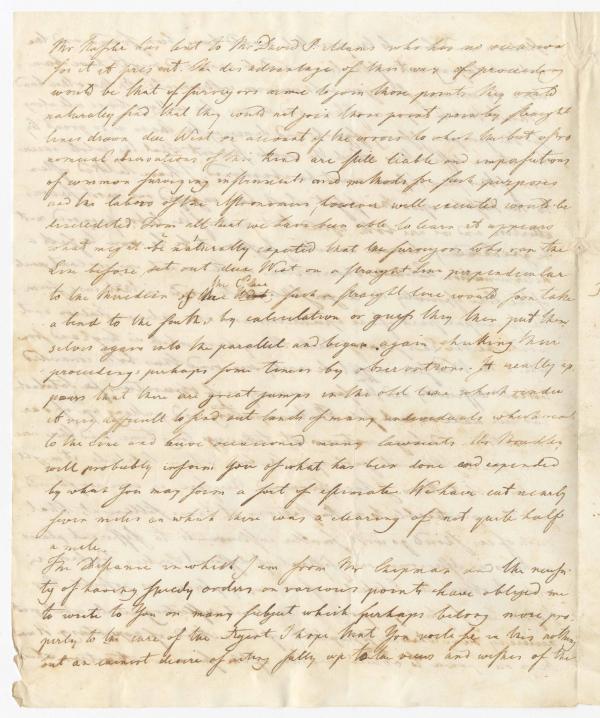 Mr Hassler has lent to Mr David P. Adams who has no occasion
for it at present. The disadvantage of this way of proceeding
would be that if Surveyors came to join those points they would
naturally find that they could not join those point by straight
lines drawn due West on account of the errors to which the best astro
nomical observations of this kind are still liable and imperfections
of common surveying instruments and methods for such purposes
and the labors of the astronomers, however well executed would be
discredited. From all that we have been able to learn it appears
what might be naturally expected that the Surveyors who ran the
Line before set out due West on a straight Line perpendicular
to the Meridian of the Such a straight line would soon take
a bend to the South, by calculation or guess they then put them
selves again into the parallel and began again checking their
proceedings perhaps some times by observations. It really ap
pears that there are great jumps in the old Line which render
it very difficult to find out lands of many individuals which went
to the Line and have occasioned many lawsuits. Mr
will probably inform You of what has been done and expended
by what You may form a sort of estimate. We have cut nearly
seven miles on which there was a clearing of not quite half
a mile.
The Distance in which I am from Mr Chapman and the necessi
ty of having speedy orders on various points have obliged me
to write to You on many subject which perhaps belong more pro
perly to the care of the Agent I hope that You will see in this nothing
but an earnest desire of acting fully up to the views and wishes of the